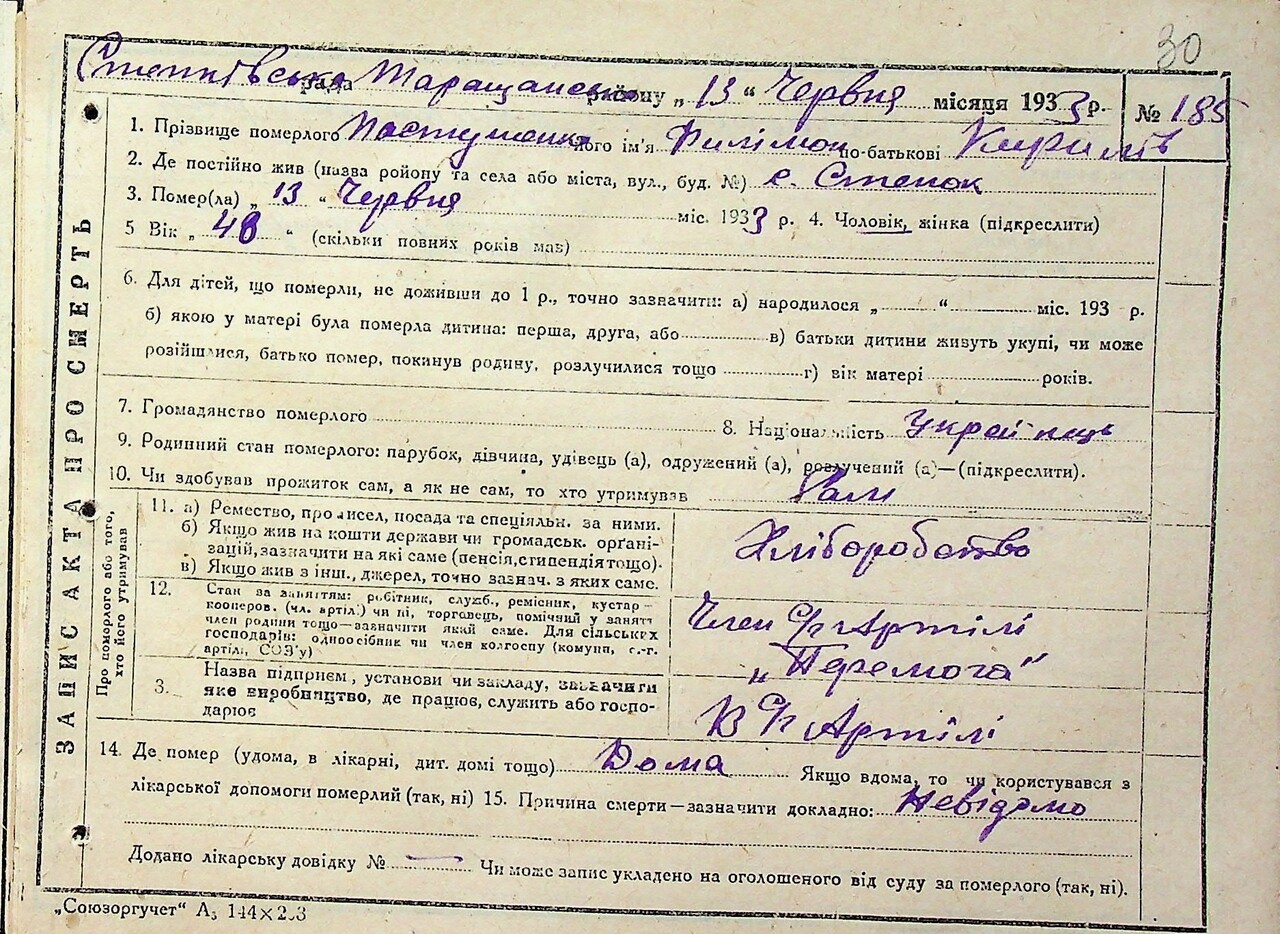 30
Степківська рада Таращанськ району „ 13 “ Червня місяця 1933 р. № 185
1. Прізвище померлого Пастушенко його ім'я Филімон по-батькові Кирилів
2. Де постійно жив (назва ройону та села або міста, вул., буд. №) с. Степок
3. Помер(ла) „ 13 “ Червня міс. 1933 р. 4. Чоловік, жінка (підкреслити)
5 Вік „ 48 “ (скільки повних років мав)
6. Для дітей, що померли, не доживши до 1 р., точно зазначити: а) народилося „ “ міс. 193 р.
б) якою у матері була померла дитина: перша, друга, або в) батьки дитини живуть укупі, чи може
розійшлися, батько помер, покинув родину, розлучилися тощо г) вік матері років.
7. Громадянство померлого 8. Національність Українець
9. Родинний стан померлого: парубок, дівчина, удівець (а), одружений (а), розлучений (а)—(підкреслити).
10. Чи здобував прожиток сам, а як не сам, то хто утримував Сам
ЗАПИС АКТА ПРО СМЕРТЬ
Про померлого або того,
хто його утримував
11. а) Ремество, промисел, посада та спеціяльн. за ними.
б) Якщо жив на кошти держави чи громадськ. орґані-
зацій, зазначити на які саме (пенсія, стипендія тощо).
в) Якщо жив з інш., джерел, точно зазнач. з яких саме.
Хліборобство
12. Стан за заняттям: робітник, служб., ремісник, кустар —
кооперов. (чл. артіл.) чи ні, торговець, помічний у занятт
член родини тощо—зазначити який саме. Для сільських
господарів: одноосібник чи член колгоспу (комуни, с.-г.
артіл., СОЗ'у)
Член С/г Артілі
„Перемога“
3. Назва підприєм., установи чи закладу, зазначити
яке виробництво, де працює, служить або госпо-
дарює
В С/г Артілі
14. Де помер (удома, в лікарні, дит. домі тощо) Дома Якщо вдома, то чи користувався з
лікарської допомоги померлий (так, ні) 15. Причина смерти—зазначити докладно: Невідомо
Додано лікарську довідку № — Чи може запис укладено на оголошеного від суду за померлого (так, ні).
„Союзоргучет“ А₅ 144×203